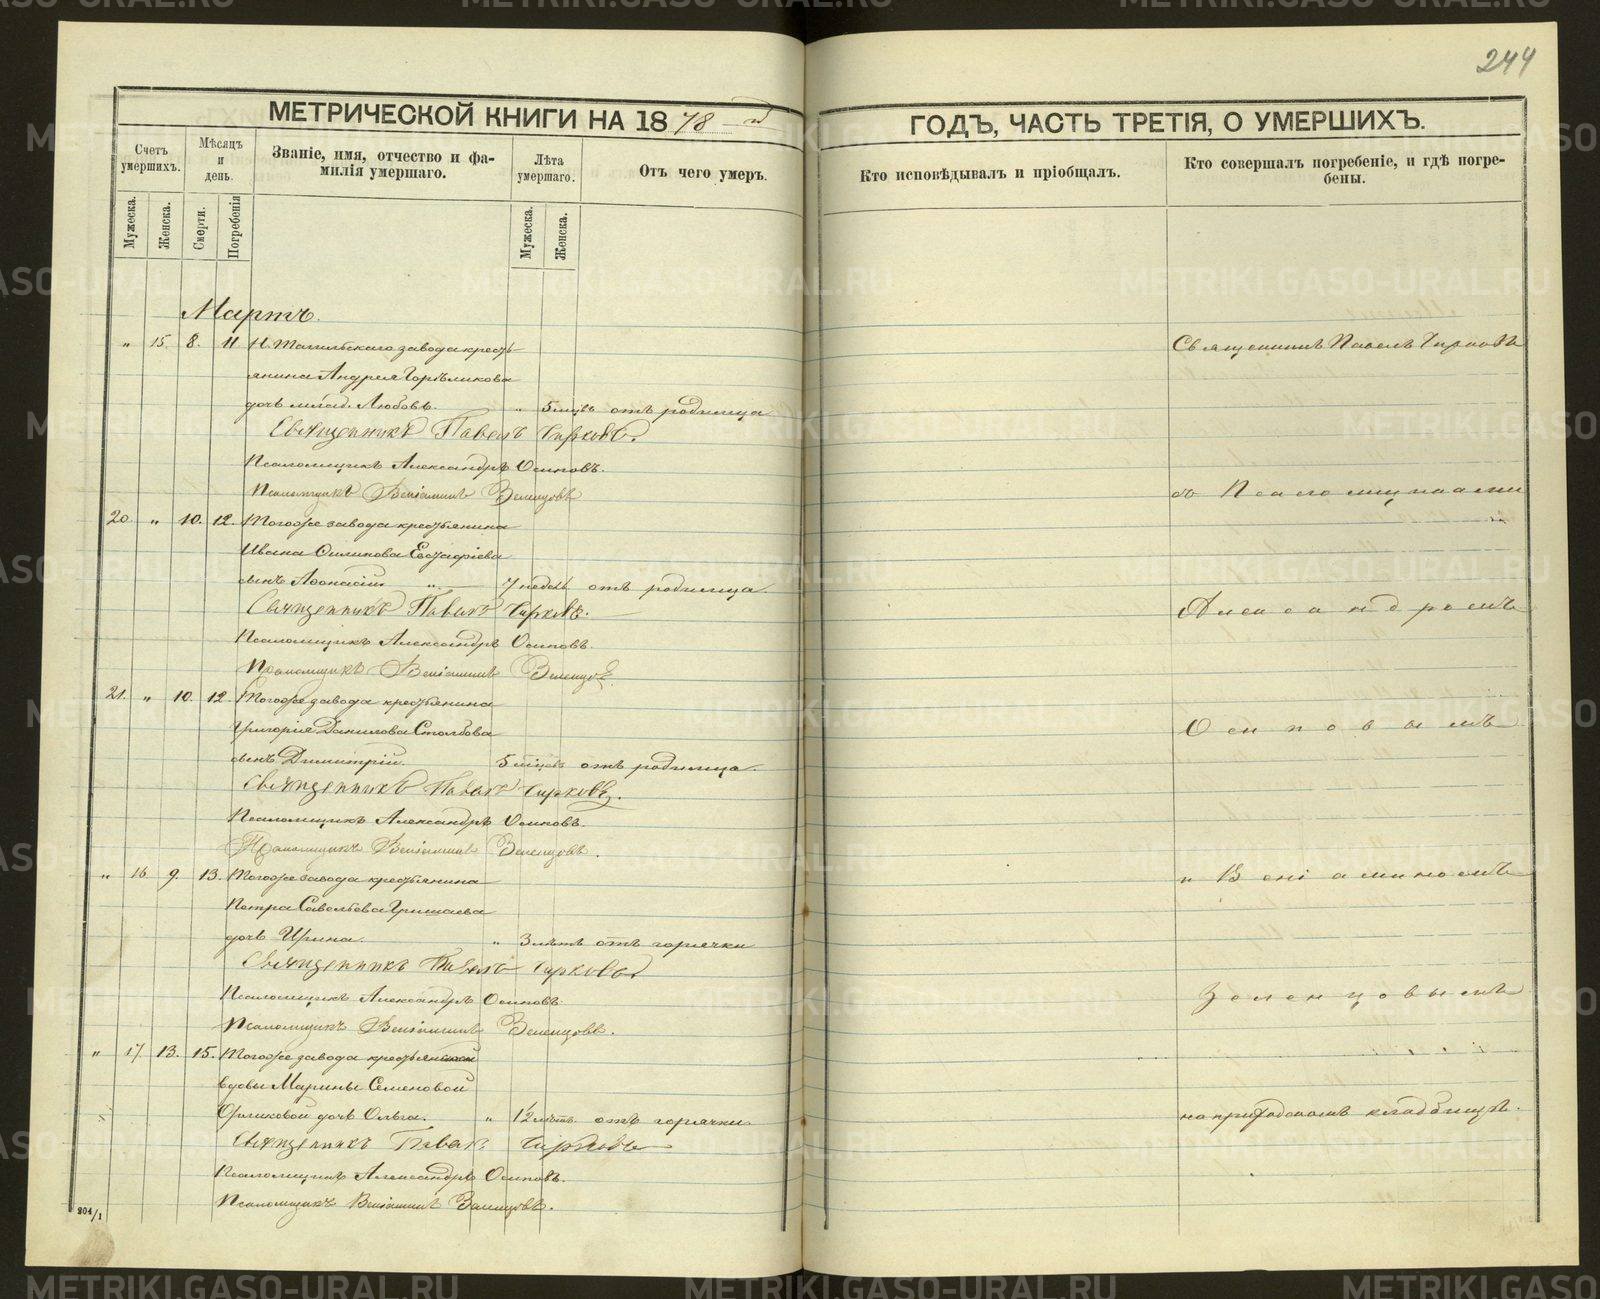 244
МЕТРИЧЕСКОЙ КНИГИ НА 1878 й
ГОДЪ, ЧАСТЬ ТРЕТІЯ, О УМЕРШИХЪ.
Счетъ умершихъ.
Мѣсяцъ и день.
Званіе, имя, отчество и фамилія умершаго.
Лѣта умершаго.
Отъ чего умеръ.
Кто исповѣдывалъ и пріобщалъ.
Кто совершалъ погребеніе, и гдѣ погребены.
Мужеска.
Женска.
Смерти.
Погребенія
Мужеска.
Женска.
Мартъ.
" 15. 8. 11. Н. Тагильскаго завода крестьянина Андрея
дочь млад. Любовь. " 5 мцвъ отъ родимца
Священникъ Павелъ Чирковъ.
Псаломщикъ Александръ Осиповъ.
Псаломщикъ Веніаминъ Зеленцовъ
20. " 10. 12. Тогоже завода крестьянина
Ивана Филипова
сынъ Аѳонасій " 7 недель отъ родимца.
Священникъ Павелъ Чирковъ.
Псаломщикъ Александръ Осиповъ.
Псаломщикъ Веніаминъ Зеленцовъ
21. " 10. 12. Тогоже завода крестьянина
Григорія Данилова Столбова
сынъ Димитрій. 5 мцевъ отъ родимца.
Священникъ Павелъ Чирковъ.
Псаломщикъ Александръ Осиповъ.
Псаломщикъ Веніаминъ Зеленцовъ.
" 16. 9. 13. Тогоже завода крестьянина
Петра Савельева Гришаева
дочь Ирина. " 3 лѣтъ отъ горячки
Священникъ Павелъ Чирковъ
Псаломщикъ Александръ Осиповъ.
Псаломщикъ Веніаминъ Зеленцовъ.
" 17. 13. 15. Тогоже завода крестьянской
вдовы Марины Семеновой
дочь Ольга. " 12 лѣтъ. отъ горячки
Священникъ Павелъ Чирковъ
Псаломщикъ Александръ Осиповъ.
Псаломщикъ Веніаминъ Зеленцовъ.
204/1
Священникъ Павелъ Чирковъ
со Псаломщиками
Александромъ
Осиповымъ
и Веніаминомъ
Зеленцовымъ
на приходскомъ кладбищѣ.
METRIKI.GASO-URAL.RU